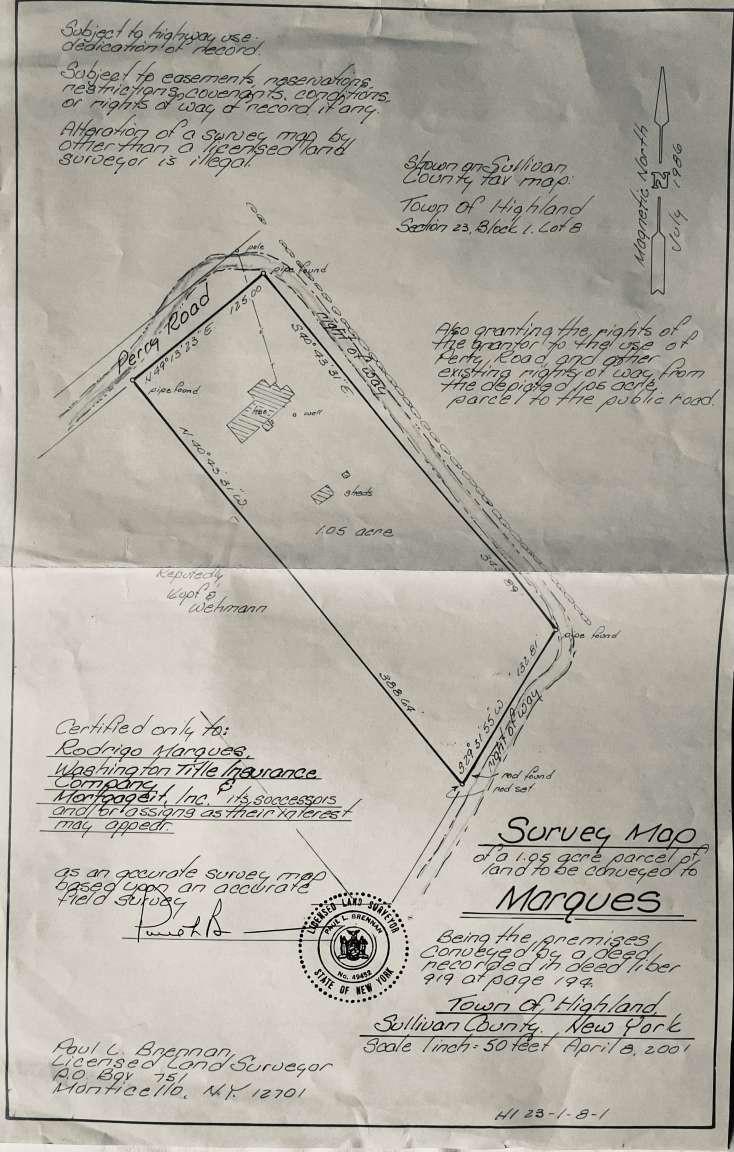 Subject to highway use
dedication of record.
Subject to easements, reservations,
restrictions, covenants, conditions,
or rights of way of record if any.
Alteration of a survey map by
other than a licensed land
surveyor is illegal.
Shown on Sullivan
County tax map:
Town Of Highland
Section 23, Block 1, Lot 8
Magnetic North
July 1986
Also granting the rights of
the grantor to the use of
Perry Road and other
existing rights of way from
the depicted 1.05 acre
parcel to the public road.
pole
pipe found
Perry Road
N 49° 13' 23" E
125.00
S 40° 43' 31" E
right of way
pipe found
hse.
well
sheds
1.05 acre
N 40° 43' 31" W
343.89
Reputedly
Kopf &
Wehmann
388.64'
pipe found
132.81'
S 29° 31' 55" W
right of way
rod found
rod set
Certified only to:
Rodrigo Marques,
Washington Title Insurance
Company &
Mortgageit, Inc. its successors
and/or assigns as their interest
may appear.
as an accurate survey map
based upon an accurate
field survey
LICENSED LAND SURVEYOR
PAUL L. BRENNAN
No. 49452
STATE OF NEW YORK
Survey Map
of a 1.05 acre parcel of
land to be conveyed to
Marques
Being the premises
conveyed by a deed
recorded in deed liber
919 at page 194.
Town Of Highland
Sullivan County, New York
Scale 1 inch = 50 feet April 8, 2001
Paul L. Brennan
Licensed Land Surveyor
P.O. Box 751
Monticello, N.Y. 12701
HI 23-1-8-1